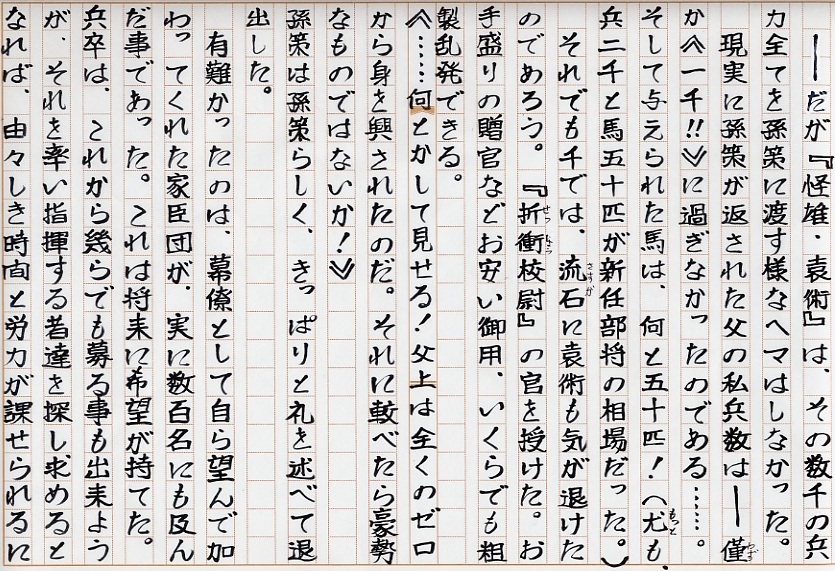 ――だが『怪雄・袁術』は、その数千の兵
力全てを孫策に渡す様なヘマはしなかった。
　現実に孫策が返された父の私兵数は――僅
か《一千!!》に過ぎなかったのである……。
そして与えられた馬は、何と五十匹！（尤も、
兵二千と馬五十匹が新任部将の相場だった。）
　それでも千では、流石に袁術も気が退けた
のであろう。『折衝校尉』の官を授けた。お
手盛りの贈官などお安い御用、いくらでも粗
製乱発できる。
《……何とかして見せる！父上は全くのゼロ
から身を興されたのだ。それに較べたら豪勢
なものではないか！》
孫策は孫策らしく、きっぱりと礼を述べて退
出した。
　有難かったのは、幕僚として自ら望んで加
わってくれた家臣団が、実に数百名にも及ん
だ事であった。これは将来に希望が持てた。
兵卒は、これから幾らでも募る事も出来よう
が、それを率い指揮する者達を探し求めると
なれば、由々しき時間と労力が課せられるに